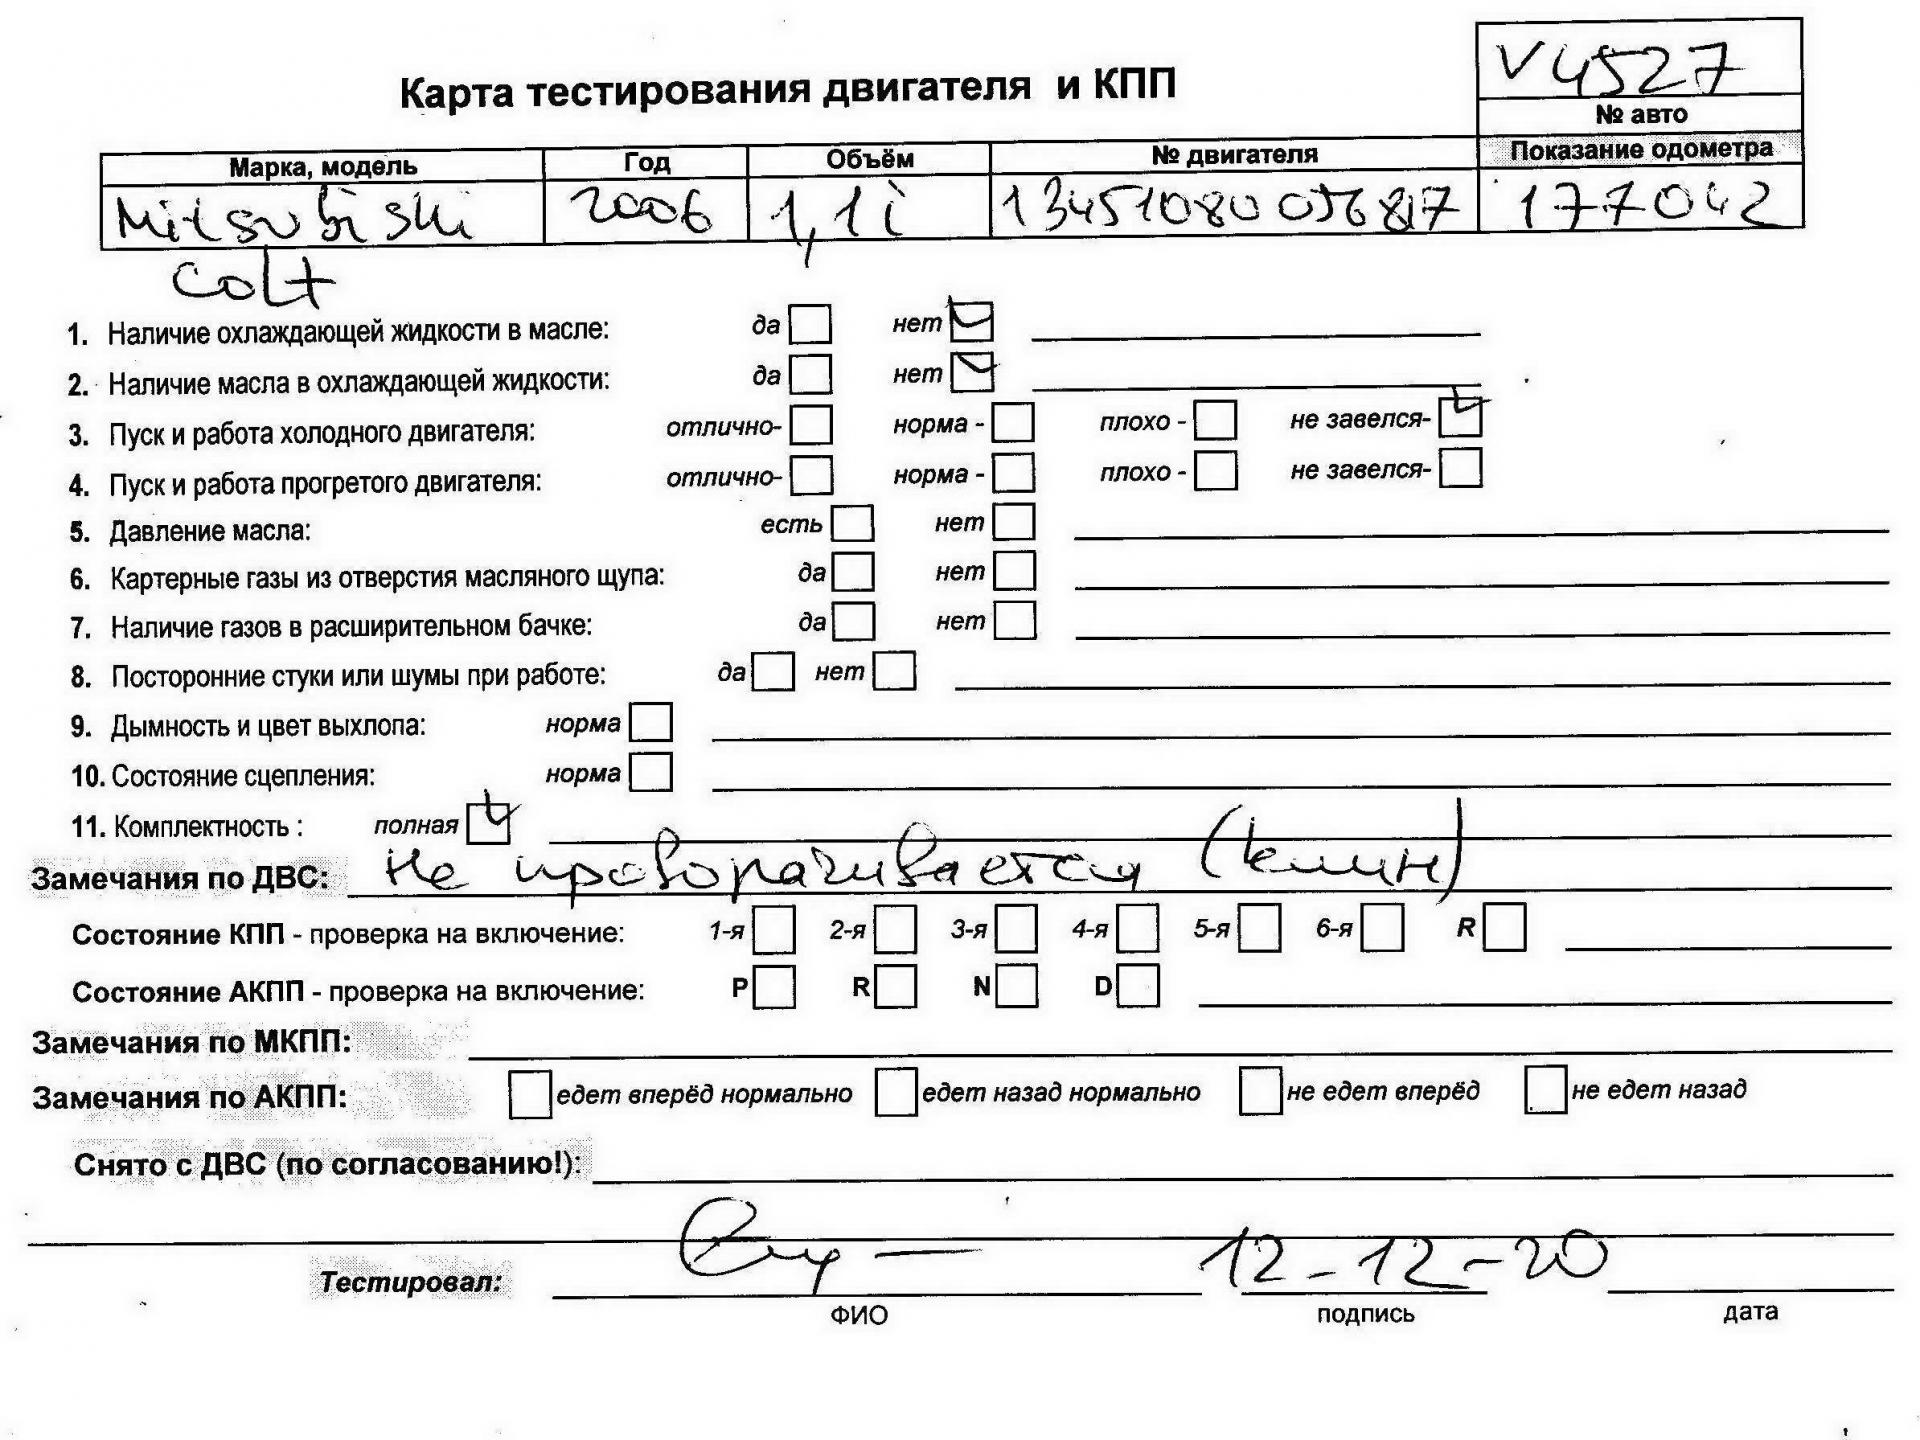 V4527
Карта тестирования двигателя и КПП
№ авто
Марка, модель Год Объём № двигателя Показание одометра
Mitsubishi 2006 1,1i 177042
Colt
1. Наличие охлаждающей жидкости в масле: да нет
2. Наличие масла в охлаждающей жидкости: да нет
3. Пуск и работа холодного двигателя: отлично- норма - плохо - не завелся-
4. Пуск и работа прогретого двигателя: отлично- норма - плохо - не завелся-
5. Давление масла: есть нет
6. Картерные газы из отверстия масляного щупа: да нет
7. Наличие газов в расширительном бачке: да нет
8. Посторонние стуки или шумы при работе: да нет
9. Дымность и цвет выхлопа: норма
10. Состояние сцепления: норма
11. Комплектность : полная
Замечания по ДВС: не проворачивается (клин)
Состояние КПП - проверка на включение: 1-я 2-я 3-я 4-я 5-я 6-я R
Состояние АКПП - проверка на включение: P R N D
Замечания по МКПП:
Замечания по АКПП: едет вперёд нормально едет назад нормально не едет вперёд не едет назад
Снято с ДВС (по согласованию!):
Тестировал: 12-12-20
ФИО подпись дата